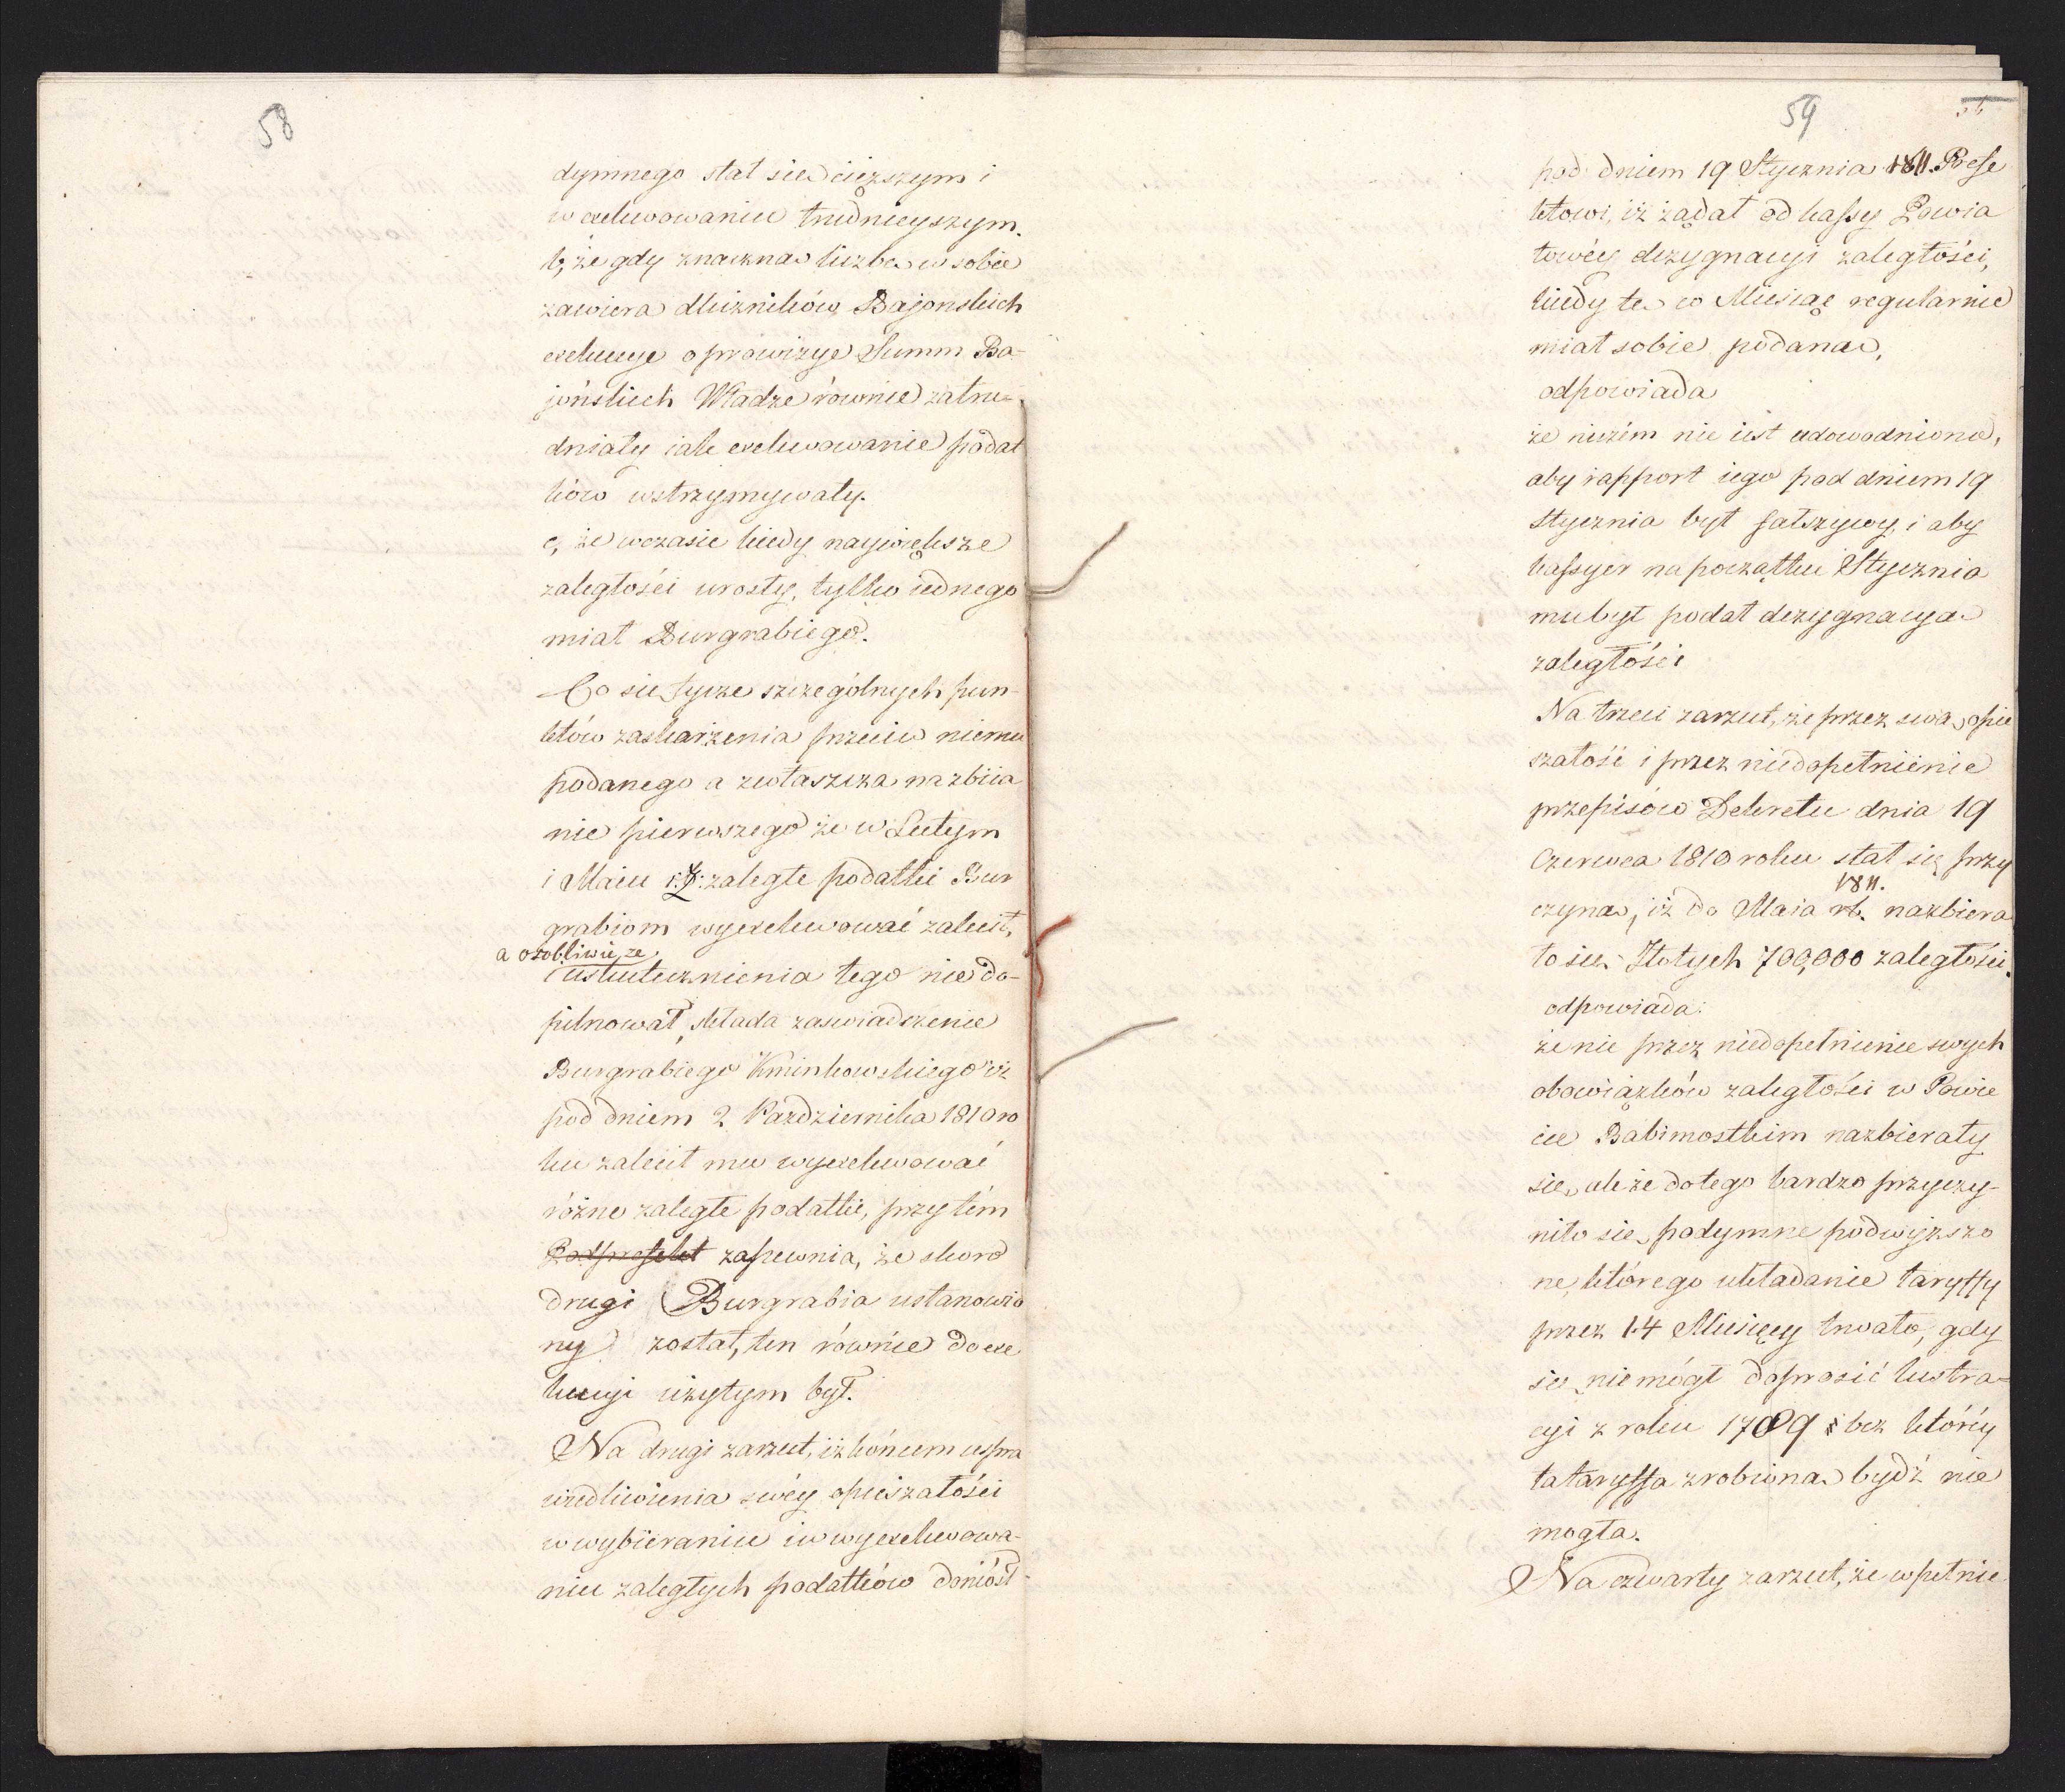 58
dymnego stał się cięższym i
w exekwowaniu trudnieyszym.
b, że gdy znaczna liczba w sobie
zawiera dłużników Bajonskich
exekucye o prowizye Summ Ba-
jońskich Władze równie zatru-
dniały iak exekwowanie podat
ków wstrzymywały.
c, że w czasie kiedy naywiększe
zaległości urosły, tylko iednego
miał Burgrabiego.
Co się tycze szczególnych pun-
któw zaskarżenia przeciw niemu
podanego a zwłaszcza na zbiia
nie pierwszego że w Lutym
i Maiu zaległe podatki Bur
grabiom wyexekwować zalecił,
a osobliwie że
i uskutecznienia tego nie do-
pilnował, składa zaswiadczenie
Burgrabiego Kminkowskiego iż
pod dniem 2 Października 1810 ro
ku zalecił mu wyexekwować
różne zaległe podatki, przytém
zapewnia, że skoro
drugi Burgrabia ustanowio
ny został, ten równie do exe
kucyi użytym był.
Na drugi zarzut, iż końcem uspra
wiedliwienia swéy opieszałości
w wybieraniu i w wyexekwowa-
niu zaległych podatków doniósł
59
pod dniem 19 Stycznia 1811. Prefe
ktowi, iż żądał od kassy Powia
towéy dezygnacyi zaległości,
kiedy te co Miesiąc regularnie
miał sobie podaną,
odpowiada
że niczém nie iest udowodnione,
aby rapport iego pod dniem 19
Stycznia był fałszywy, i aby
kassyer na początku Stycznia
mu był podał dezygnacyą
zaległości
Na trzeci zarzut, że przez swą opie
szałość i przez niedopełnienie
przepisów Dekretu dnia 19
Czerwca 1810 roku stał się przy
1811.
czyną, iż do Maia rb. nazbiera
ło się Złotych 700,000 zaległości.
odpowiada:
że nie przez niedopełnienie swych
obowiązków zaległości w Powie
cie Babimostkim nazbierały
się, ale że do tego bardzo przyczy-
niło się podymne podwyższo
ne, którego układanie taryffy
przez 14 Miesięcy trwało, gdy
się nie mógł doprosić lustra-
cyi z roku 1789 bez któréy
ta taryffa zrobiona bydź nie
mogła.
Na czwarty zarzut, że w pełnie